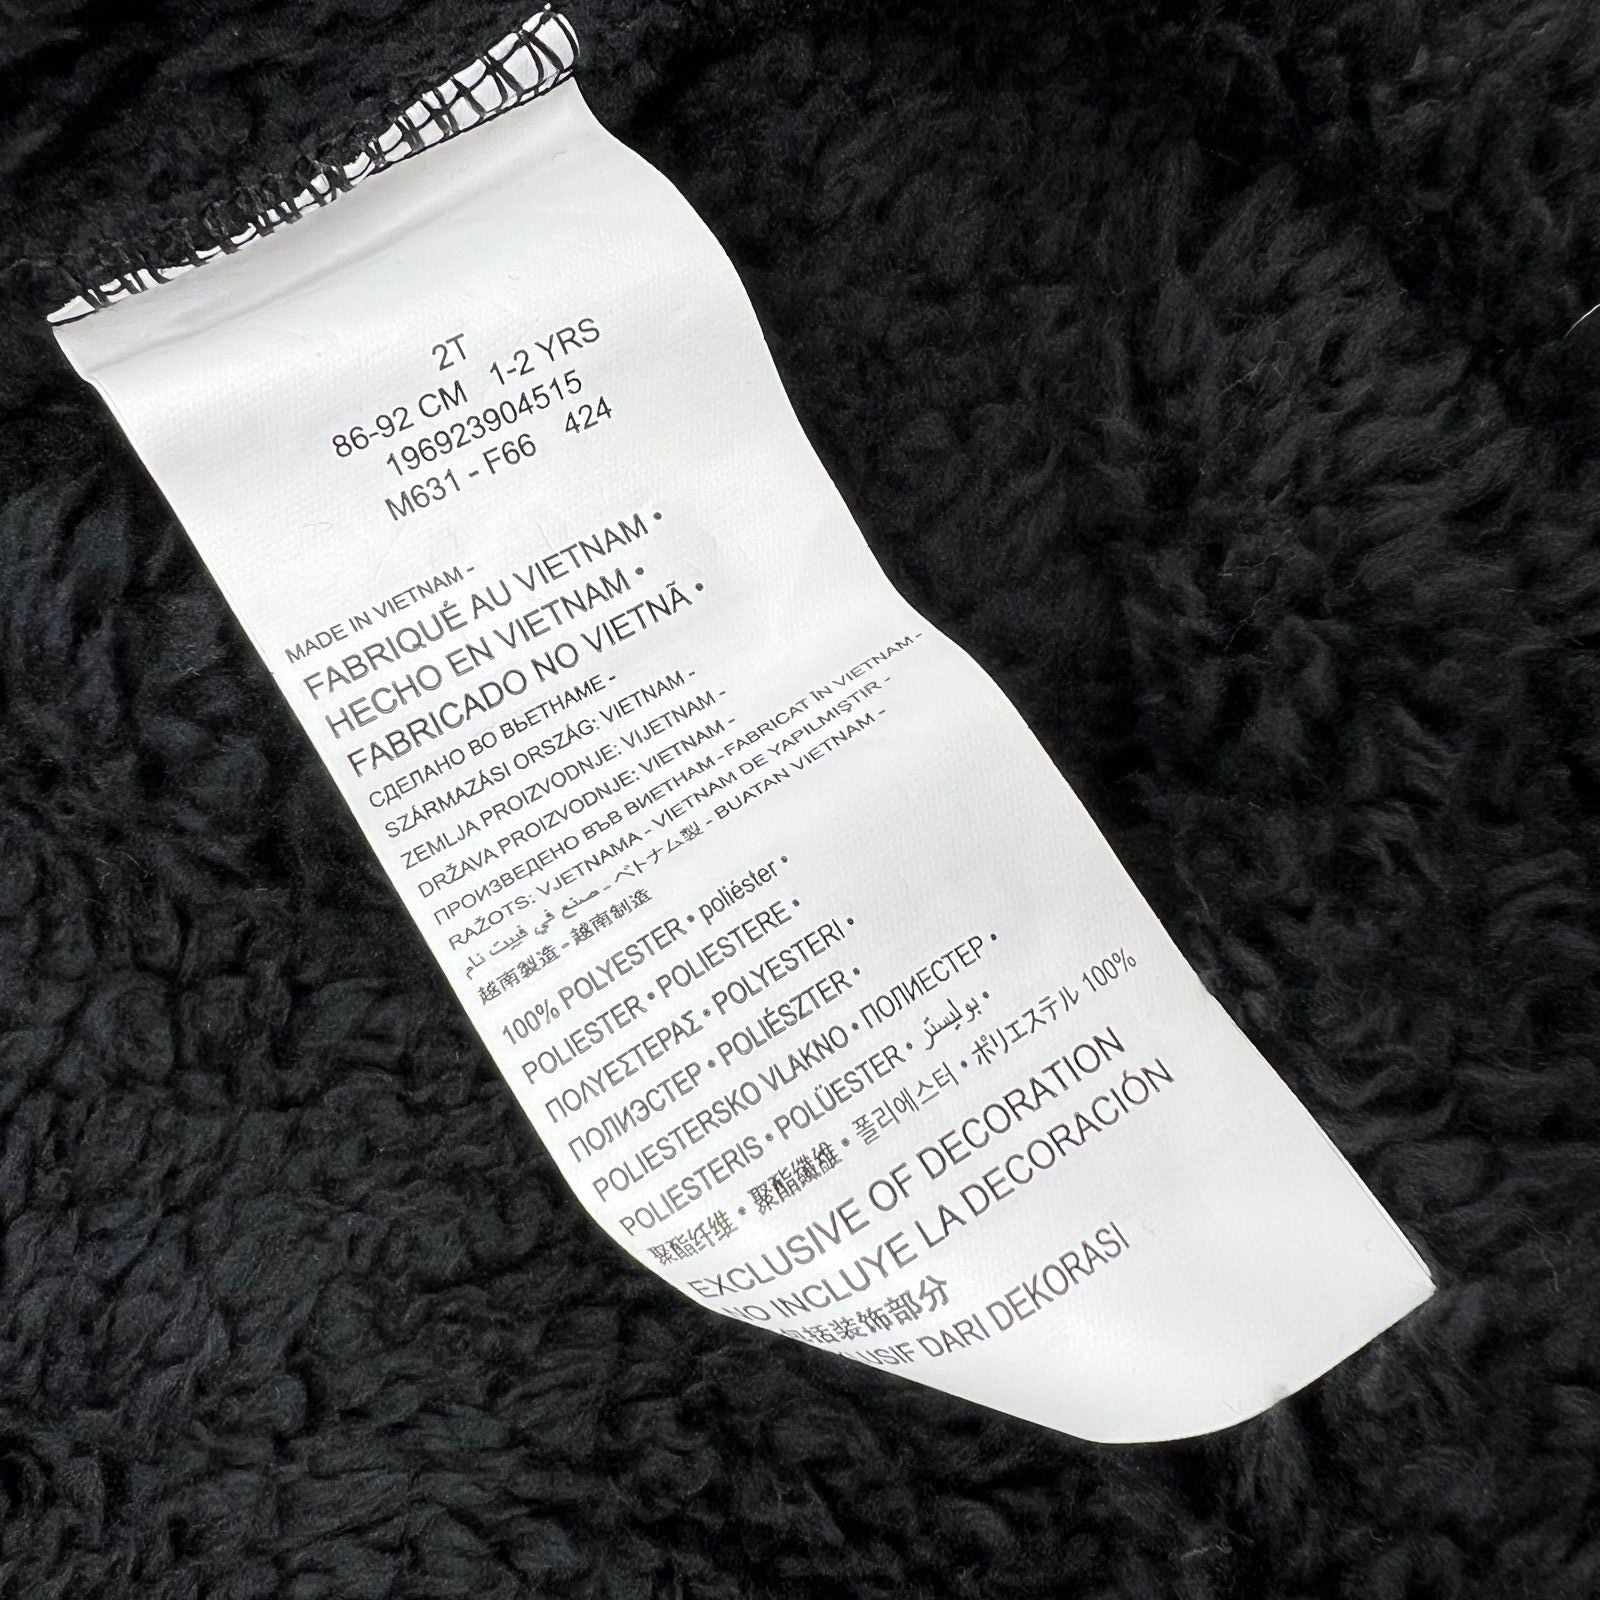 2T
86-92 CM 1-2 YRS
196923904515
M631 - F66 424
MADE IN VIETNAM -
FABRIQUÉ AU VIETNAM •
HECHO EN VIETNAM •
FABRICADO NO VIETNÃ •
СДЕЛАНО ВО ВЬЕТНАМЕ -
SZÁRMAZÁSI ORSZÁG: VIETNAM -
ZEMLJA PROIZVODNJE: VIJETNAM -
DRŽAVA PROIZVODNJE: VIETNAM -
ПРОИЗВЕДЕНО ВЪВ ВИЕТНАМ - FABRICAT ÎN VIETNAM -
RAŽOTS: VJETNAMA - VIETNAM DE YAPILMIŞTIR -
صنع في فييت نام - ベトナム製 - BUATAN VIETNAM -
越南製造 - 越南制造
100% POLYESTER • poliéster •
POLIESTER • POLIESTERE •
ΠΟΛΥΕΣΤΕΡΑΣ • POLYESTERI •
ПОЛИЭСТЕР • POLIÉSZTER •
POLIESTERSKO VLAKNO • ПОЛИЕСТЕР •
POLIESTERIS • POLÜESTER • بوليستر •
聚酯纤维 • 聚酯纖維 • 폴리에스터 • ポリエステル 100%
EXCLUSIVE OF DECORATION
NO INCLUYE LA DECORACIÓN
包括装饰部分
LUSIF DARI DEKORASI